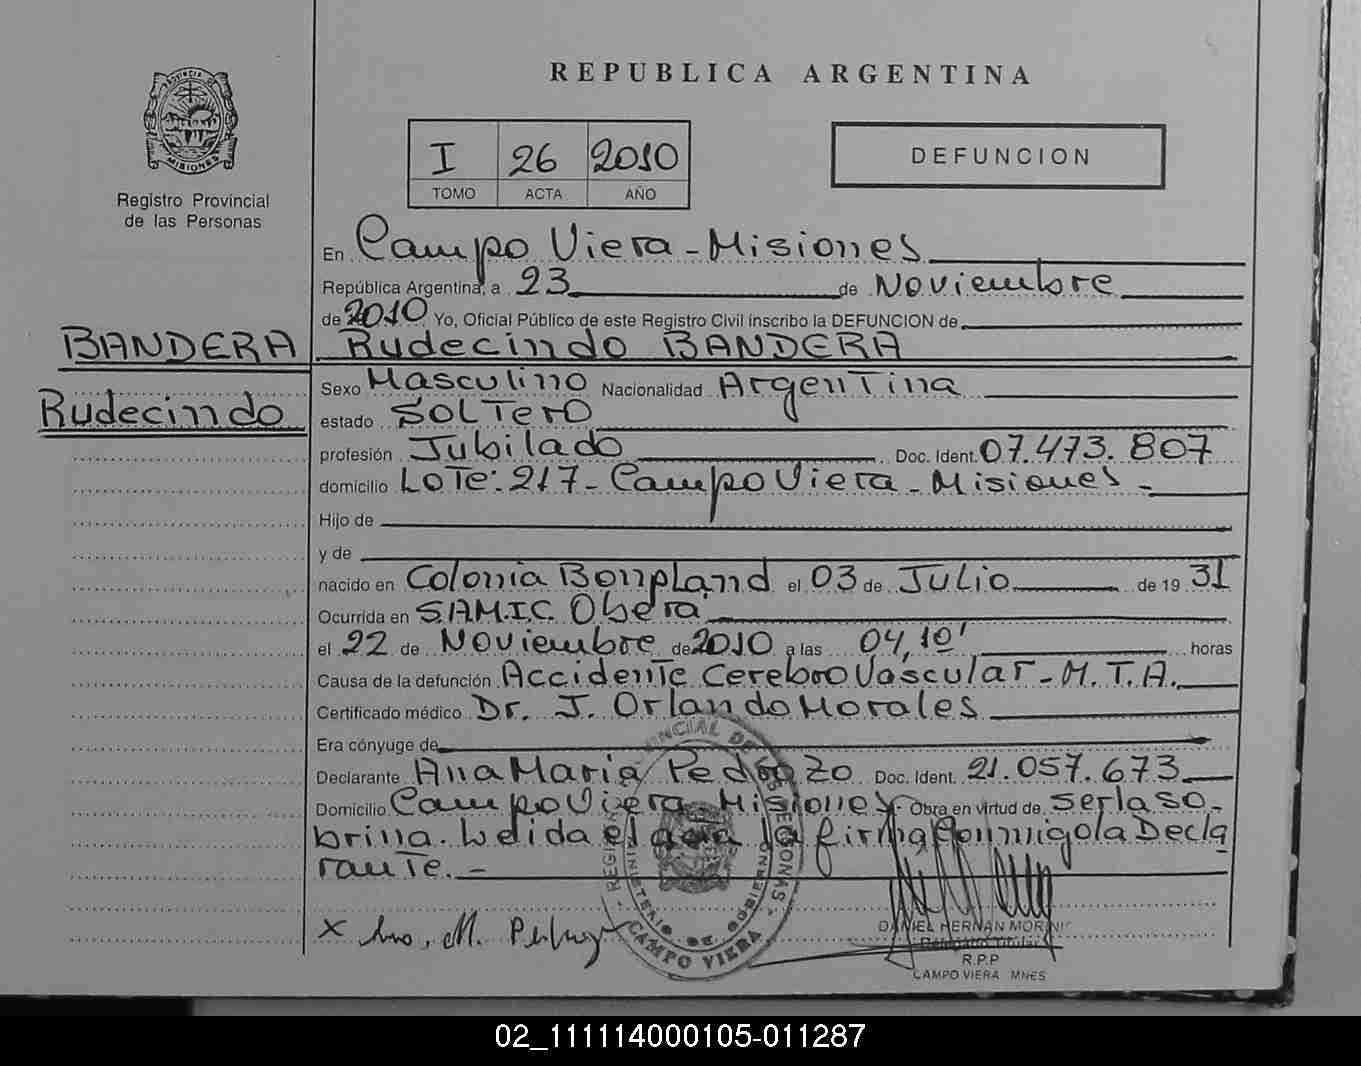 REPUBLICA ARGENTINA
PROVINCIA DE MISIONES
Registro Provincial
de las Personas
I 26 2010
TOMO ACTA AÑO
DEFUNCION
En Campo Viera - Misiones
República Argentina, a 23 de Noviembre
de 2010 Yo, Oficial Público de este Registro Civil inscribo la DEFUNCION de
BANDERA
Rudecindo
Rudecindo BANDERA
Sexo Masculino Nacionalidad Argentina
estado SOLTERO
profesión Jubilado Doc. Ident. 07.473.807
domicilio LoTe: 217 - Campo Viera - Misiones -
Hijo de
y de
nacido en Colonia Bonpland el 03 de Julio de 19 31
Ocurrida en S.A.M.I.C. Obera
el 22 de Noviembre de 2010 a las 04,10' horas
Causa de la defunción Accidente CerebroVascular - M.T.A.
Certificado médico Dr. J. Orlando Morales
Era cónyuge de
Declarante Ana Maria Pedrozo Doc. Ident. 21.057.673
Domicilio Campo Viera Misiones - Obra en virtud de ser la so-
brina. Leida el acta la firma conmigo la Decla
rante. -
DANIEL HERNAN MORINIC
Delegado Titular
R.P.P
CAMPO VIERA MNES
MINISTERIO DE GOBIERNO
CAMPO VIERA
02_111114000105-011287